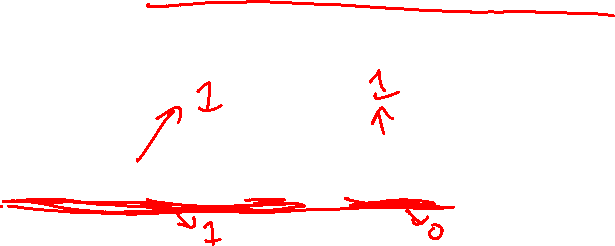 1 1
1 0